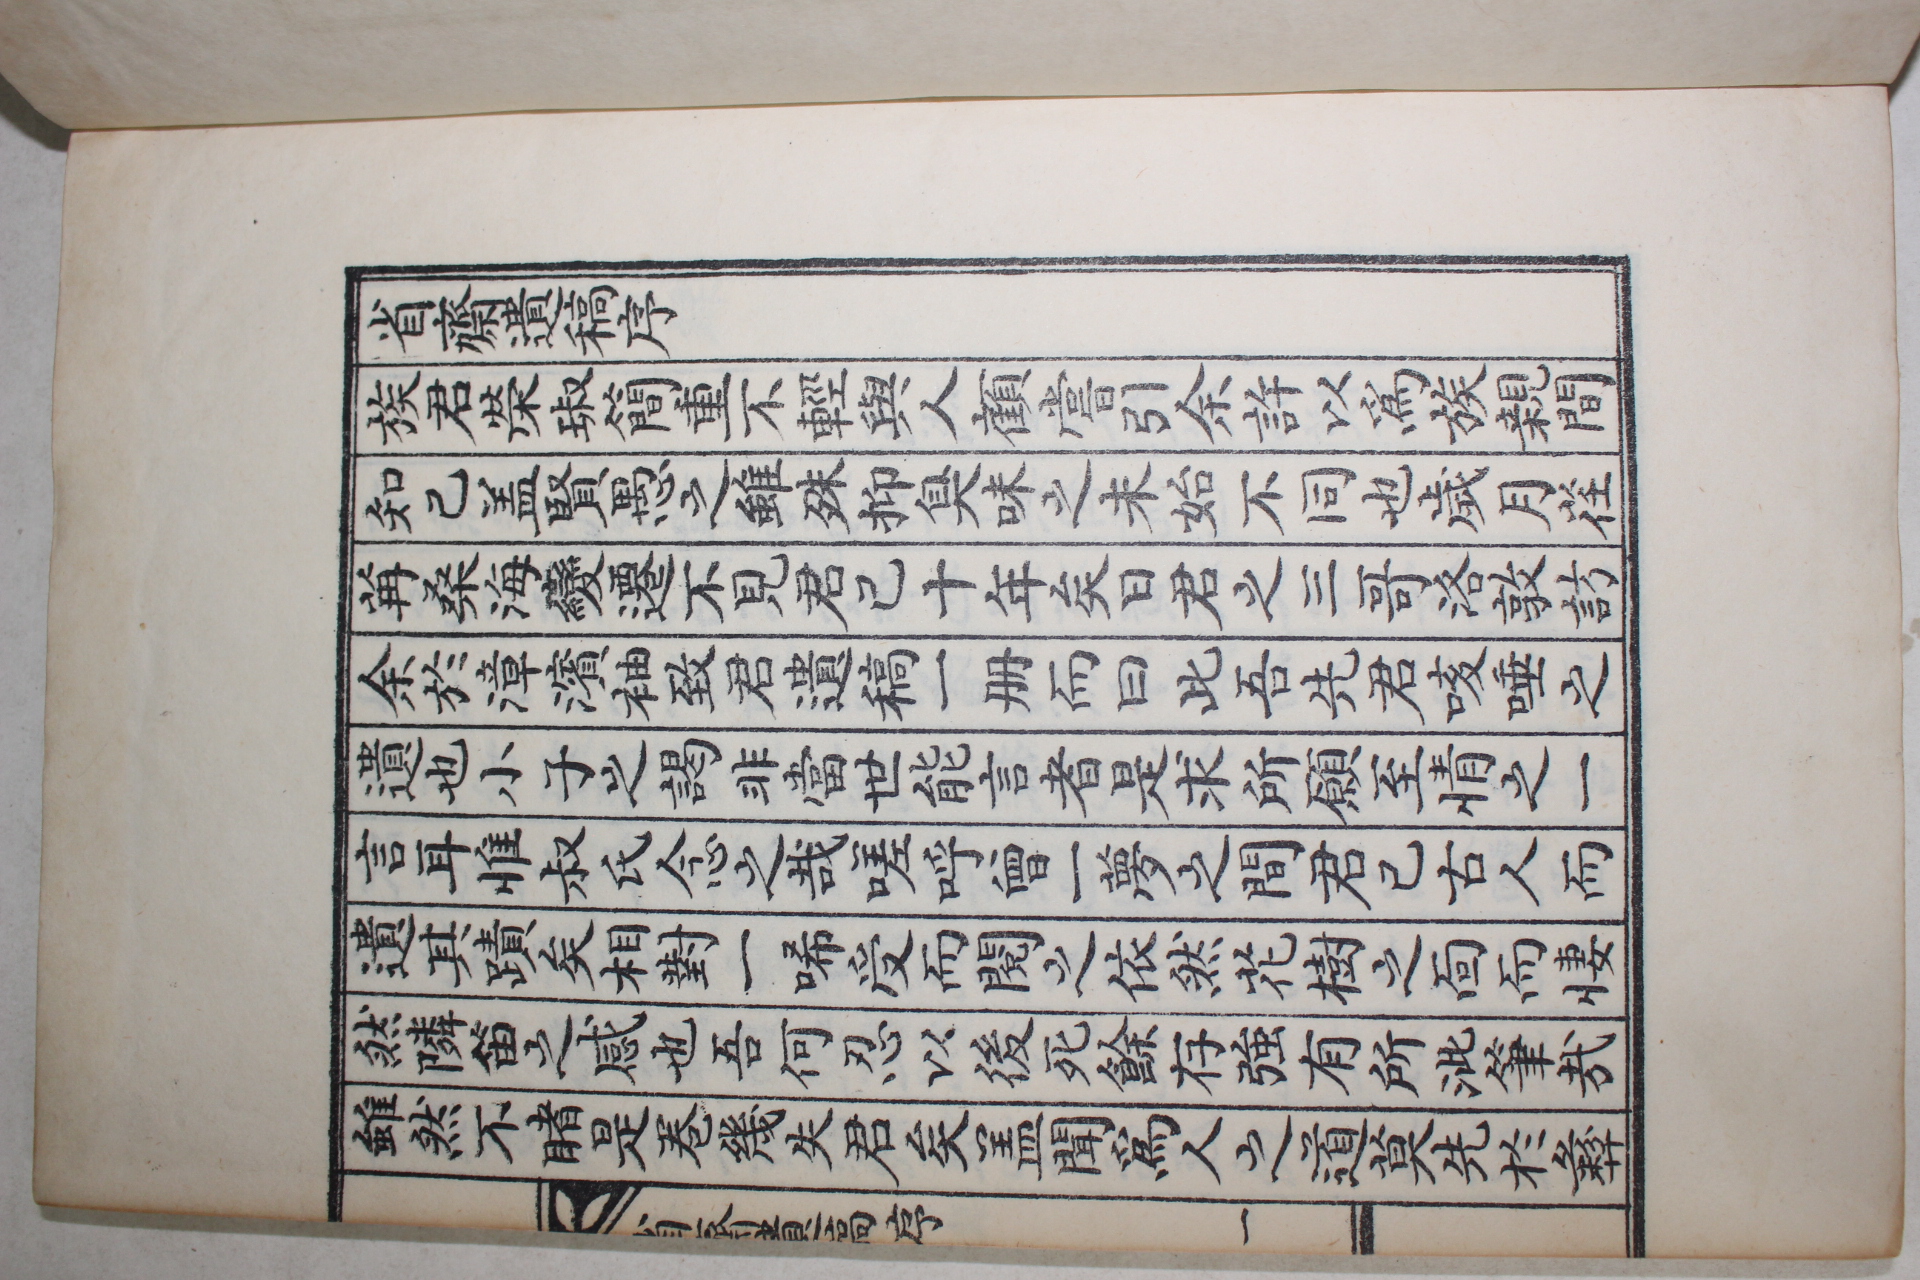 省齋遺稿序
族君榮琡簡重不輕與人顧嘗引余許以爲族親間
知己盖賢愚之雖殊抑臭味之未始不同也歲月荏
苒桑海變遷不見君已十年矣日君之三哥洛敦訪
余於漳濱袖致君遺稿一冊而曰此吾先君咳唾之
遺也小子之謁非當世能言者是求所願至情之一
言耳惟叔氏念之哉嗟呼曾一夢之間君已古人而
遺其蹟矣相對一唏受而閱之依然花樹之面而悽
然隣笛之感也吾何忍以後死餘存強有所泚筆哉
雖然不睹是卷幾失君矣盖聞爲人之道莫先於彝
省齋遺稿序 一